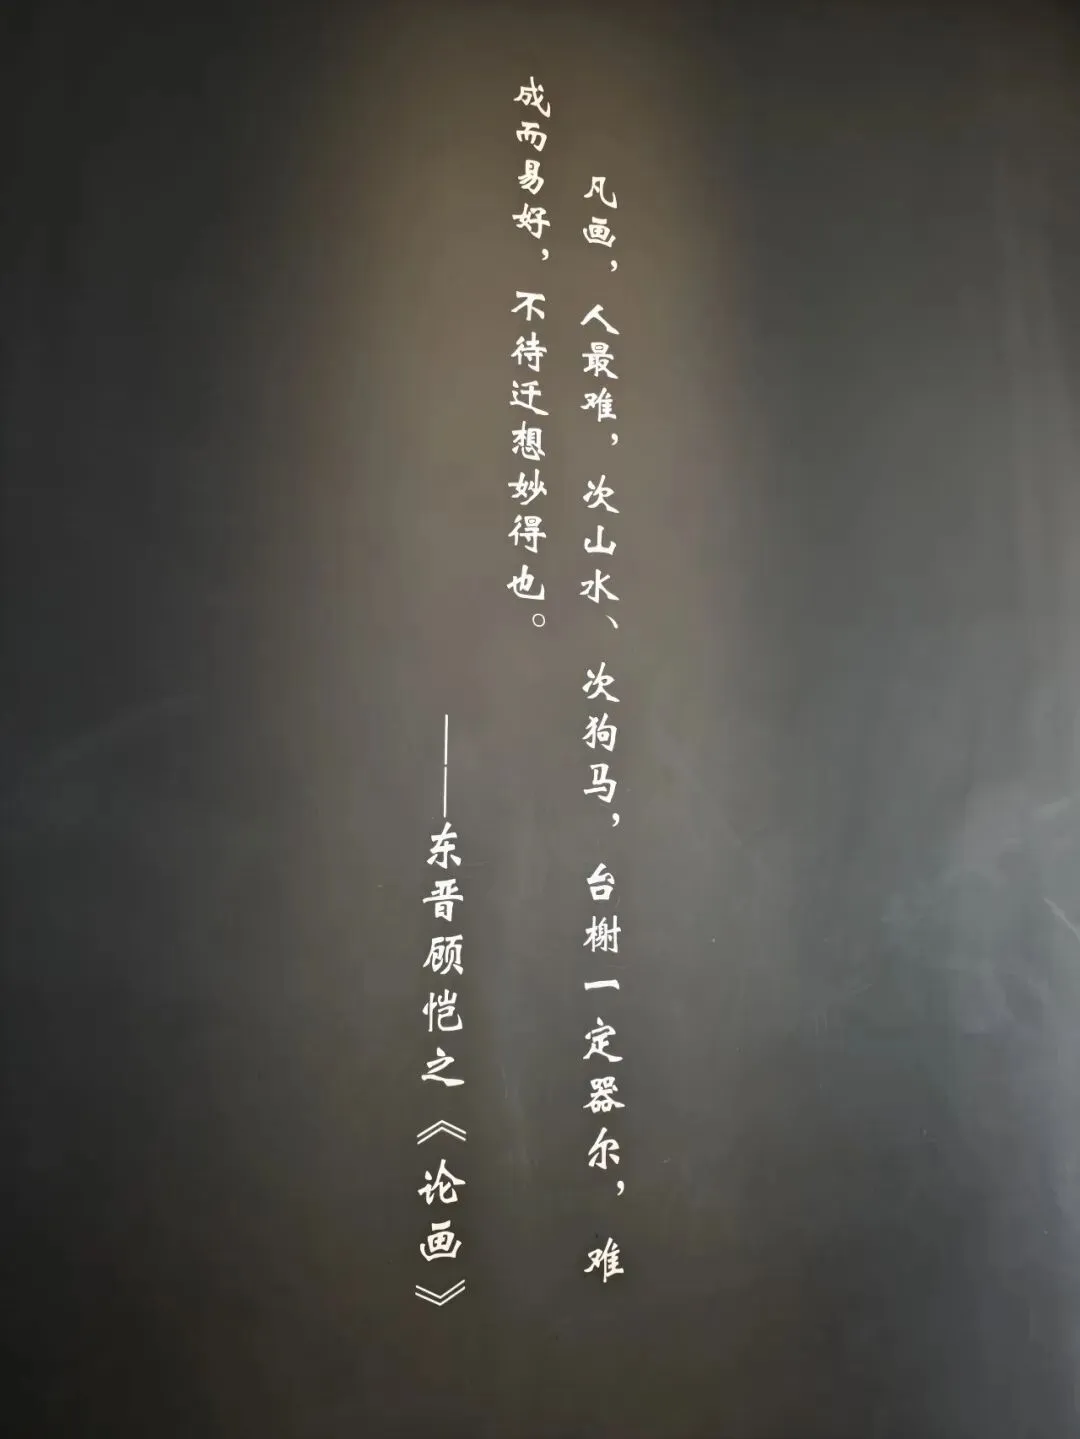 凡画，人最难，次山水、次狗马，台榭一定器尔，难
成而易好，不待迁想妙得也。
——东晋顾恺之《论画》